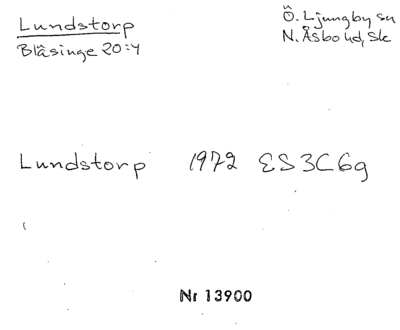 Lundstorp
Blåsinge 20:4
Ö. Ljungby sn
N. Åsbo hd, Sk
Lundstorp 1972 ES3C6g
Nr 13900